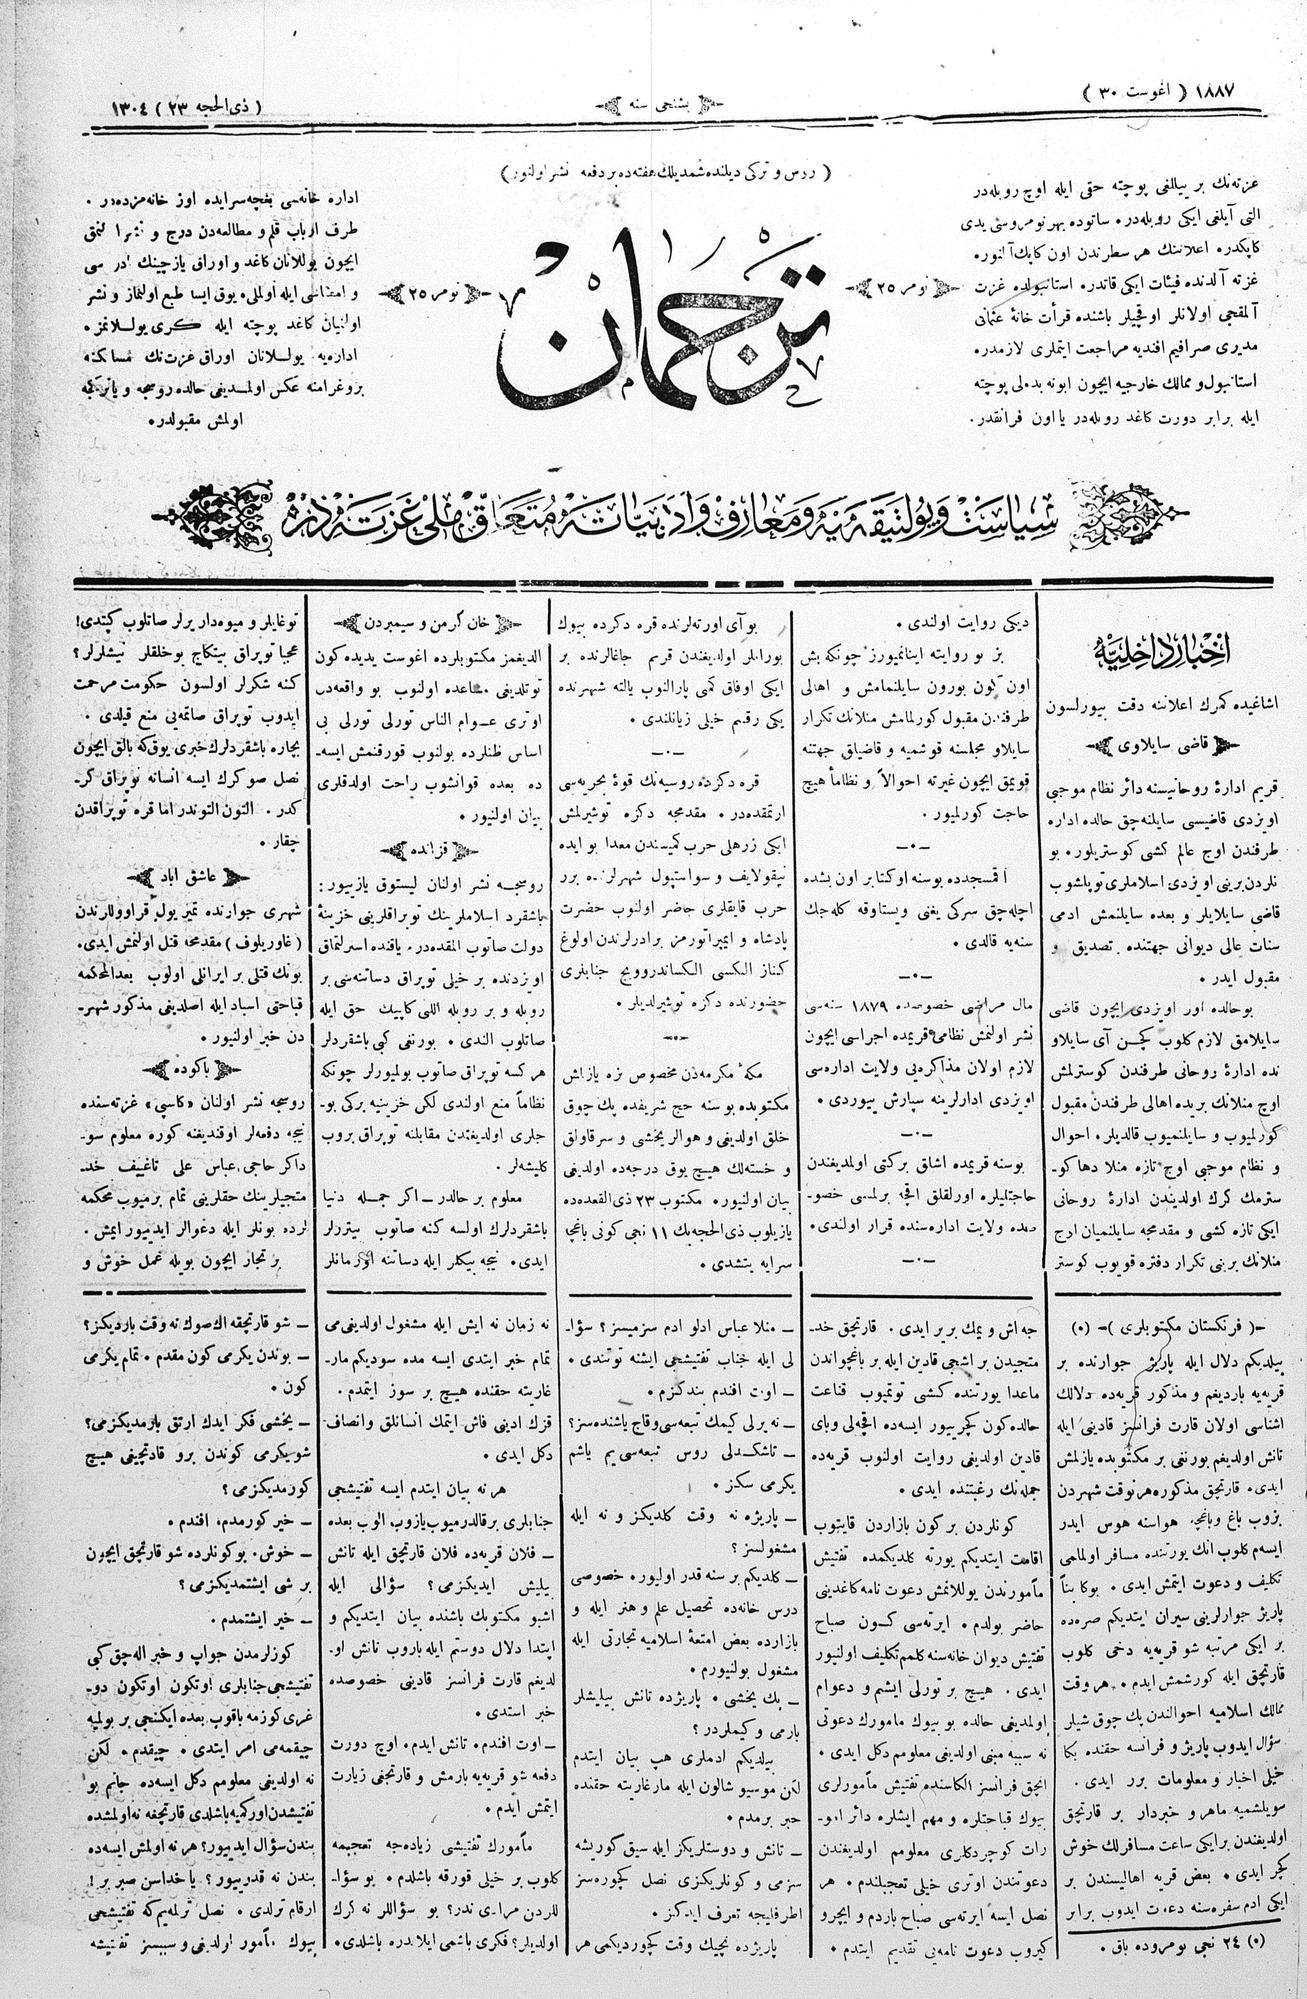 ١٨٨٧ ( اغوست ٣٠ )
بشنجی سنه
( ذی الحجه ٢٣ ) ١٣٠٤
( روس و ترکی دیلنده شمدیلك هفته‌ده بر دفعه نشر اولنور )
غزته‌نك بر ییللغی پوچته حقی ایله اوچ روبله‌در
التی آیلغی ایکی روبله‌در. ساتوده بهر نومروسی یدی
کاپکدر. اعلاننك هر سطرندن اون کاپك آلنور.
غزته آلدنده فیئات ایکی قاتدر. استانبولده غزت
آلمقجی اولانلر اوقجیلر باشنده قرأت خانهٔ عثمانی
مدیری صرافیم افندیه مراجعت ایتملری لازمدر.
استانبول و ممالك خارجیه ایچون ابونه بدلی پوچته
ایله برابر دورت کاغد روبله‌در یا اون فرانقدر.
نومر ٢٥
ترجمان
نومر ٢٥
اداره خانه‌سی بغچه‌سرایده اوز خانه‌مزده‌در.
طرف ارباب قلم و مطالعه‌دن درج و نشر اولنمق
ایچون یوللانان کاغد و اوراق یازجینك ادرسی
و امضاسی ایله اولملی. یوق ایسا طبع اولنماز و نشر
اولنیان کاغد پوچته ایله کری یوللانمز.
اداره‌یه یوللانان اوراق غزت‌نك مسلکنه
پروغرامنه عکس اولمدیغی حالده روسجه و یا ترکچه
اولمش مقبولدر.
سیاست و پولتیقه‌یه و معارف و ادبیاته متعلق ملی غزته‌در
اخبار داخلیه
اشاغیده کمرك اعلاننه دقت بیورلسون
قاضی سایلاوی
قریم ادارهٔ روحانیسنه دائر نظام موجبی
اویزدی قاضیسی سایلنه‌جق حالده اداره
طرفندن اوچ عالم کشی کوستریلور. بو
نلردن برینی اویزدی اسلاملری توپلاشوب
قاضی سایلایلر و بعده سایلنمش ادمی
سنات عالی دیوانی جهتنده تصدیق و
مقبول ایدر.
بو حالده اور اویزدی ایچون قاضی
سایلامق لازم کلوب کچن آی سایلاو
نده ادارهٔ روحانی طرفندن کوسترلمش
اوچ منلانك بریده اهالی طرفندن مقبول
کورلمیوب و سایلنمیوب قالدیلر. احوال
و نظام موجبی اوچ تازه منلا دها کو-
سترمك کرك اولدیندن ادارهٔ روحانی
ایکی تازه کشی و مقدمجه سایلنمیان اوچ
منلانك برینی تکرار دفتره قویوب کوستر
دیکی روایت اولندی.
بز بو روایته اینانمیورز چونکه بش
اون کون بورون سایلنمامش و اهالی
طرفندن مقبول کورلمامش منلانك تکرار
سایلاو مجلسنه قوشمیه و قاضیلق جهتنه
قویمق ایچون غیرته احوالاً و نظاماً هیچ
حاجت کورلمیور.
—٠—
آقمسجدده بو سنه اوکتابر اون بشده
اچله‌جق سرکی یغنی ویستاوقه کله‌جك
سنه‌یه قالدی.
—٠—
مال مراضی خصوصده ١٨٧٩ سنه‌سی
نشر اولنمش نظامی قریمده اجراسی ایچون
لازم اولان مذاکره‌یی ولایت اداره‌سی
اویزدی ادارلرینه سپارش بیوردی.
—٠—
بو سنه قریمده اشلق برکتی اولمدیغندن
حاجتلیلره اورلقلق اقچه برلمسی خصو-
صده ولایت اداره‌سنده قرار اولندی.
—٠—
بو آی اورته‌لرنده قره دکزده بیوك
بورانلر اولدیغندن قریم جاغالرنده بر
ایکی اوفاق کمی پارالنوب یالته شهرنده
یکی رقیم خیلی زیانلندی.
—٠—
قره دکزده روسیه‌نك قوهٔ بحریه‌سی
ارتمقده‌در. مقدمجه دکزه توشیرلمش
ایکی زرهلی حرب کمیسندن معدا بو ایده
نیقولایف و سواستپول شهرلرنده برر
حرب قایقلری حاضر اولنوب حضرت
پادشاه و ایمپراتورمز برادرلرندن اولوغ
کناز الکسی الکساندروویچ جنابلری
حضورنده دکزه توشیرلدیلر.
—٠—
مکهٔ مکرمه‌دن مخصوص بزه یازلمش
مکتوبده بو سنه حج شریفده پك چوق
خلق اولدیغی و هوالر یخشی و سرقاولق
و خسته‌لك هیچ یوق درجه‌ده اولدیغی
بیان اولنیور. مکتوب ٢٣ ذی القعده‌ده
یازیلوب ذی الحجه‌نك ١١ نجی کونی باغچه
سرایه یتشدی.
خان کرمن و سیمبردن
الدیغمز مکتوبلرده اغوست یدیده کون
توتلدیغی مشاهده اولنوب بو واقعه‌دن
اوتری عوام الناس تورلی تورلی بی
اساس ظنلرده بولنوب قورقنمش ایسه-
ده بعده قوانشوب راحت اولدقلری
بیان اولنیور.
قزانده
روسجه نشر اولنان لیستوق یازیور:
باشقرد اسلاملرینك توپراقلرینی خزینهٔ
دولت صاتوب المقده‌در. یاقنده اسرلتماق
اویزدنده بر خیلی توپراق دساتنه‌سی بر
روبله و بر روبله اللی کاپیك حق ایله
صاتلوب الندی. بورنغی کبی باشقردلر
هر کسه توپراق صاتوب بولمیورلر چونکه
نظاماً منع اولندی لکن خزینه‌یه برکی بو-
جلری اولدیغندن مقابلنه توپراق بروب
کلیشه‌لر.
معلوم بر حالدر – اکر جمله دنیا
باشقردلرك اولسه کنه صاتوب بیتررلر
ایدی. نیجه بیکلر ایله دساتنه اورمانلر
توغایلر و میوه‌دار یرلر صاتلوب کیتدی!
عجبا توپراق بیتکاچ بو خلقلر نیشلرلر؟
کنه شکرلر اولسون حکومت مرحمت
ایدوب توپراق صاتمه‌یی منع قیلدی.
بیچاره باشقردلرك خبری یوق که بالق ایچون
نصل صو کرك ایسه انسانه توپراق کر-
کدر. التون التوندر اما قره توپراقدن
چقار.
عاشق اباد
شهری جوارنده تمیر یول قراووللرندن
( غاوریلوف ) مقدمجه قتل اولنمش ایدی.
بونك قتلی بر ایرانلی اولوب بعدالمحکمه
قباحتی اسباد ایله اصلدیغی مذکور شهر-
دن خبر اولنیور.
باکوده
روسجه نشر اولنان «کاسپی» غزته‌سنده
نیجه دفعه‌لر اوقندیغنه کوره معلوم سو-
داکر حاجی عباس علی تاغییف خد-
متجیلرینك حقلرینی تمام برمیوب محکمه
لرده بونلر ایله دعوالر ایدیور ایمش.
بر تجار ایچون بویله عمل خوش و
–( فرنکستان مکتوبلری )– (٠)
بیلدیکم دلال ایله پاریژ جوارنده بر
قریه‌یه باردیغم و مذکور قریه‌ده دلالك
اشناسی اولان قارت فرانسز قادینی ایله
تانش اولدیغم بورنغی بر مکتوبده یازلمش
ایدی. قارتچق مذکوره هر نوقت شهردن
بزوب باغ وباغچه هواسنه هوس ایدر
ایسه‌م کلوب انك یورتنده مسافر اولمامی
تکلیف و دعوت ایتمش ایدی. بوکا بنأً
پاریژ جوارلرینی سیران ایتدیکم صره‌ده
بر ایکی مرتبه شو قریه‌یه دخی کلوب
قارتچق ایله کورشمش ایدم. هر وقت
ممالك اسلامیه احوالندن پك چوق شیلر
سؤال ایدوب پاریژ و فرانسه حقنده بکا
خیلی اخبار و معلومات برر ایدی.
سویلشمیه ماهر و خبردار بر قارتچق
اولدیغندن بر ایکی ساعت مسافرلك خوش
کچر ایدی. بعض قریه اهالیسندن بر
ایکی ادم سفره‌سنه دعوت ایدوب برابر
(٠) ٢٤ نجی نومروده باق.
جه اش و یمك بریر ایدی. قارتچق خد-
متجیدن بر اشجی قادین ایله بر باغچواندن
ماعدا یورتنده کشی توتمیوب قناعت
حالده کون کچرییور ایسه‌ده اقچه‌لی و بای
قادین اولدیغی روایت اولنوب قریه‌ده
جمله‌نك رغبتنده ایدی.
کونلردن بر کون بازاردن قایتوب
اقامت ایتدیکم یورته کلدیکمده تفتیش
مأمورندن یوللانمش دعوت نامه کاغدینی
حاضر بولدم. ایرته‌سی کون صباح
تفتیش دیوان خانه‌سنه کلمم تکلیف اولنیور
ایدی. هیچ بر تورلی ایشم و دعوام
اولمدیغی حالده بو بیوك مامورك دعوتی
نه سببه مبنی اولدیغی معلومم دکل ایدی.
انجق فرانسز الکاسنده تفتیش مأمورلری
بیوك قباحتلره و مهم ایشلره دائر امو-
رات کوچردکلری معلومم اولدیغندن
دعوتندن اوتری خیلی تعجبلندم. هر
نصل ایسه ایرته‌سی صباح باردم و ایچرو
کیروب دعوت نامه‌یی تقدیم ایتدم.
– منلا عباس ادلو ادم سزمیسز؟ سؤا-
لی ایله جناب تفتیشجی ایشنه توتندی.
– اوت افندم بندکزم.
– نه یرلی کیمك تبعه‌سی وقاچ یاشنده‌سز؟
– تاشکندلی روس تبعه‌سی‌یم یاشم
یکرمی سکز.
– پاریژه نه وقت کلدیکز و نه ایله
مشغولسز؟
– کلدیکم بر سنه قدر اولیور. خصوصی
درس خانه‌ده تحصیل علم و هنر ایله و
بازارده بعض امتعهٔ اسلامیه تجارتی ایله
مشغول بولنیورم.
– پك یخشی. پاریژده تانش بیلیشلر
بارمی و کیملردر؟
بیلدیکم ادملری هپ بیان ایتدم
لکن موسیو شالون ایله مارغاریته حقنده
خبر برمدم.
– تانش و دوستلریکز ایله سیق کوریشه
سزمی و کونلریکزی نصل کچوره‌سز
اطرفلیجه تعرف ایدکز.
پاریژده نچیك وقت کچوردیکمی هر
نه زمان نه ایش ایله مشغول اولدیغی‌می
تمام خبر ایتدی ایسه مده سودیکم مار-
غاریته حقنده هیچ بر سوز ایتمدم.
قزك ادینی فاش ایتمك انسانلق وانصاف-
دکل ایدی.
هر نه بیان ایتدم ایسه تفتیشجی
جنابلری بر قالدرمیوب یازوب الوب بعده
– فلان قریه‌ده فلان قارتچق ایله تانش
بیلیش ایدیکزمی؟ سؤالی ایله
اشبو مکتوبك باشنده بیان ایتدیکم و
ابتدا دلال دوستم ایله باروب تانش او-
لدیغم قارت فرانسز قادینی خصوصده
خبر استدی.
– اوت افندم. تانش ایدم. اوچ دورت
دفعه شو قریه‌یه بارمش و قارتچغی زیارت
ایتمش ایدم.
مأمورك تفتیشی زیاده‌جه تعجیمه
کلوب بر خیلی قورقه باشلدم. بو سؤا-
للردن مرادی ندر؟ بو سؤاللر نه کرك
اولدیلر؟ فکری باشمی ایلاندره باشلدی.
– شو قارتچقه اك صوك نه وقت باردیکز؟
– بوندن یکرمی کون مقدم. تمام یکرمی
کون.
– یخشی فکر ایدك ارتق بارمدیکزمی؟
شو یکرمی کوندن برو قارتچیغی هیچ
کورمدیکزمی؟
– خیر کورمدم، افندم.
– خوش. بو کونلرده شو قارتچق ایچون
بر شی ایشتمدیکزمی؟
– خیر ایشتمدم.
کوزلرمدن جواپ و خبر اله‌جق کبی
تفتیشجی جنابلری اوتکون اوتکون دو-
غری کوزمه باقوب بعده ایکنجی بر بولمیه
چیقمه‌می امر ایتدی. چیقدم. لکن
نه اولدیغی معلومم دکل ایسه‌ده جانم بو
تفتیشدن اورکمیه باشلدی قارتچغه نه اولمشده
بندن سؤال ایدیور؟ هر نه اولمش ایسه‌ده
بندن نه قدریبور؟ یا خداسن صبر بر!
ارقام ترلدی. نصل ترلمیم که تفتیشجی
بیوك مأمور اولدیغی و سببسز تفتیشه